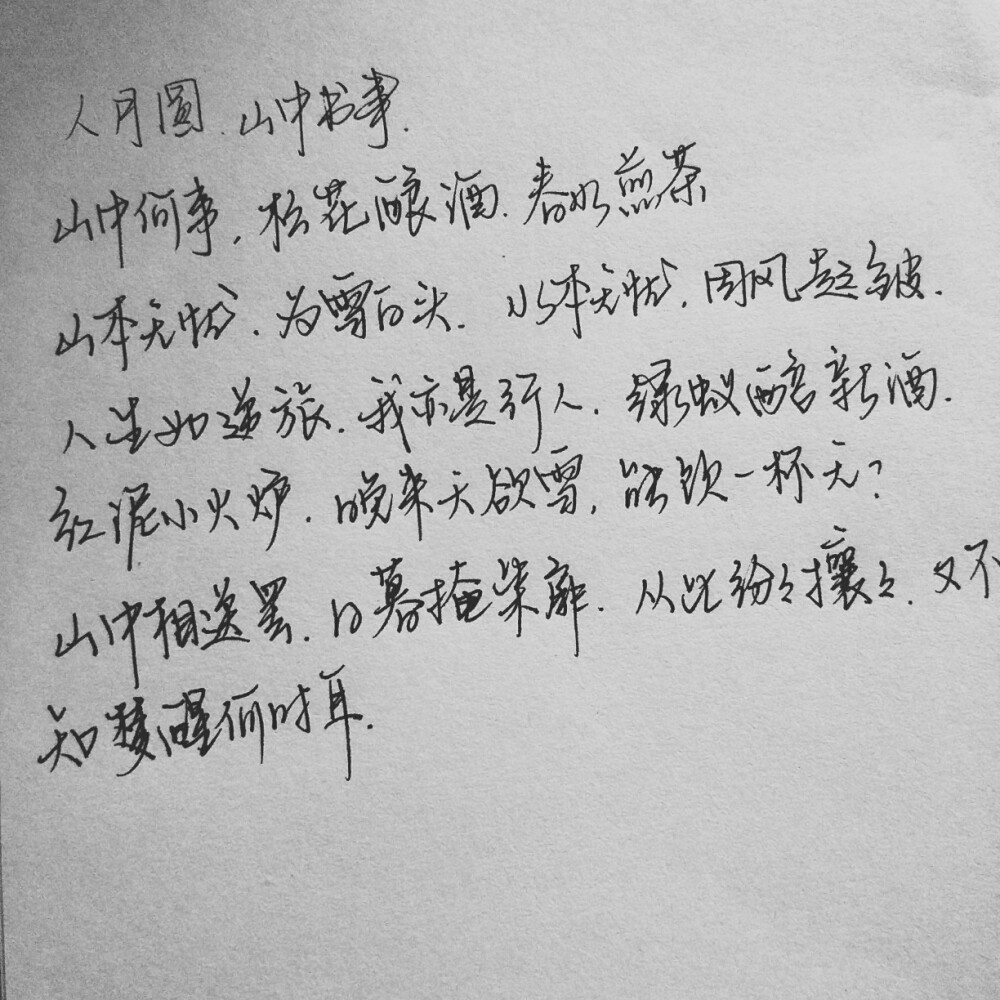 人月圆.山中书事.
山中何事,松花酿酒.春水煎茶
山本无忧.为雪白头.水本无忧.因风起皱.
人生如逆旅.我亦是行人.绿蚁醅新酒.
红泥小火炉.晚来天欲雪,能饮一杯无?
山中相送罢.日暮掩柴扉.从此纷々攘々.又不
知梦醒何时耳.